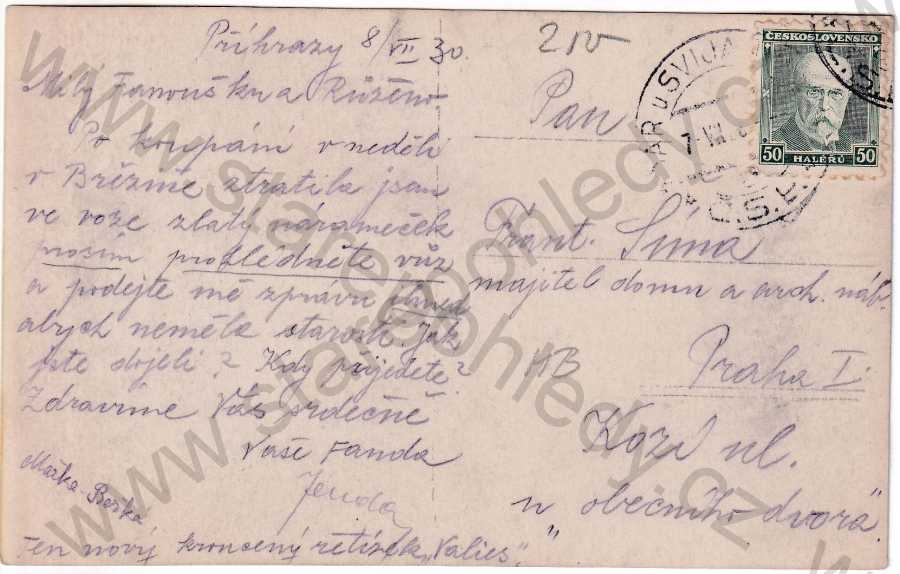 Příhrazy 8/VII 30.
Milý Fanoušku a Růženo.
Po koupání v neděli
v Březině ztratila jsem
ve voze zlatý nárameček
prosím prohlédněte vůz
a podejte mě zprávu ihned
abych neměla starosti. Jak
jste dojeli? Kdy přijedete?
Zdravíme Vás srdečně
Vaše Fanda
Jenda
Mařka Bořka
ten nový kroucený řetízek „Valies“,
210
Pan
Frant. Šíma
majitel domu a arch. náb.
HB
Praha I.
Kozí ul.
„u obecního dvora“
ČESKOSLOVENSKO
50 HALÉŘŮ 50
ČAR u SVIJAN
Č.S.R.
www.starepohledy.cz